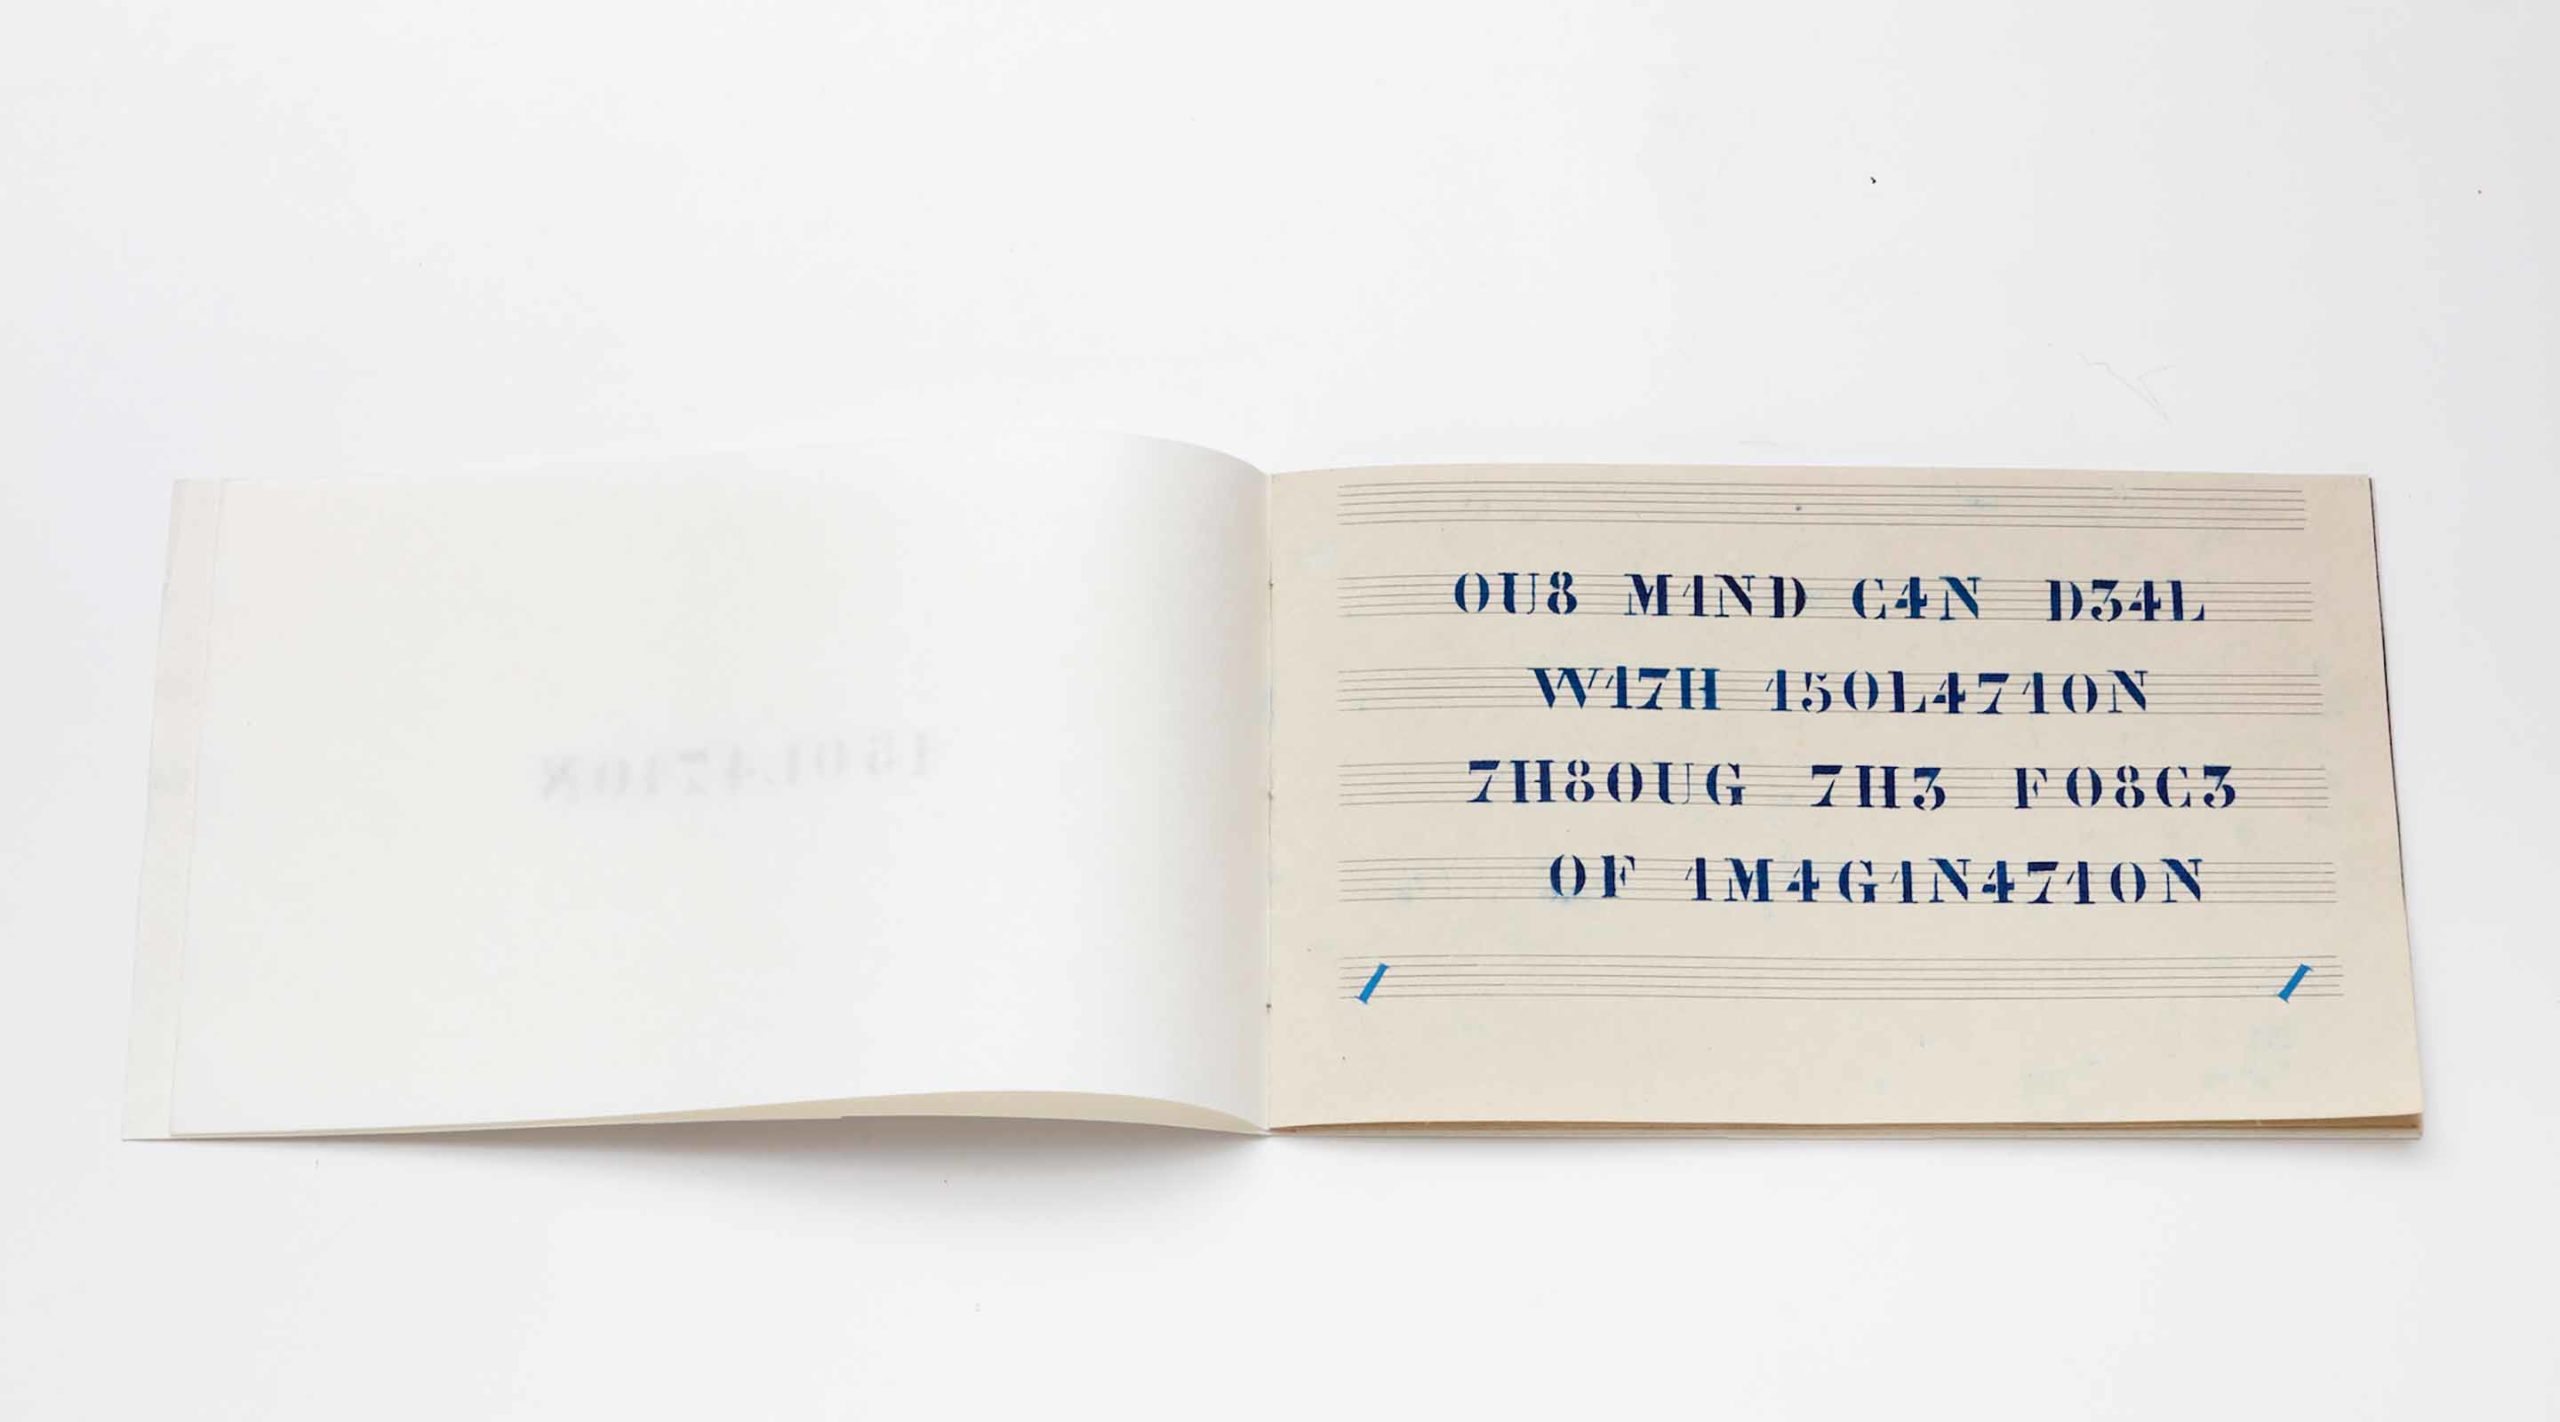 150L4710N
OU8 M1ND C4N D34L
W17H 150L4710N
7H8OUG 7H3 FO8C3
OF 1M4G1N4710N